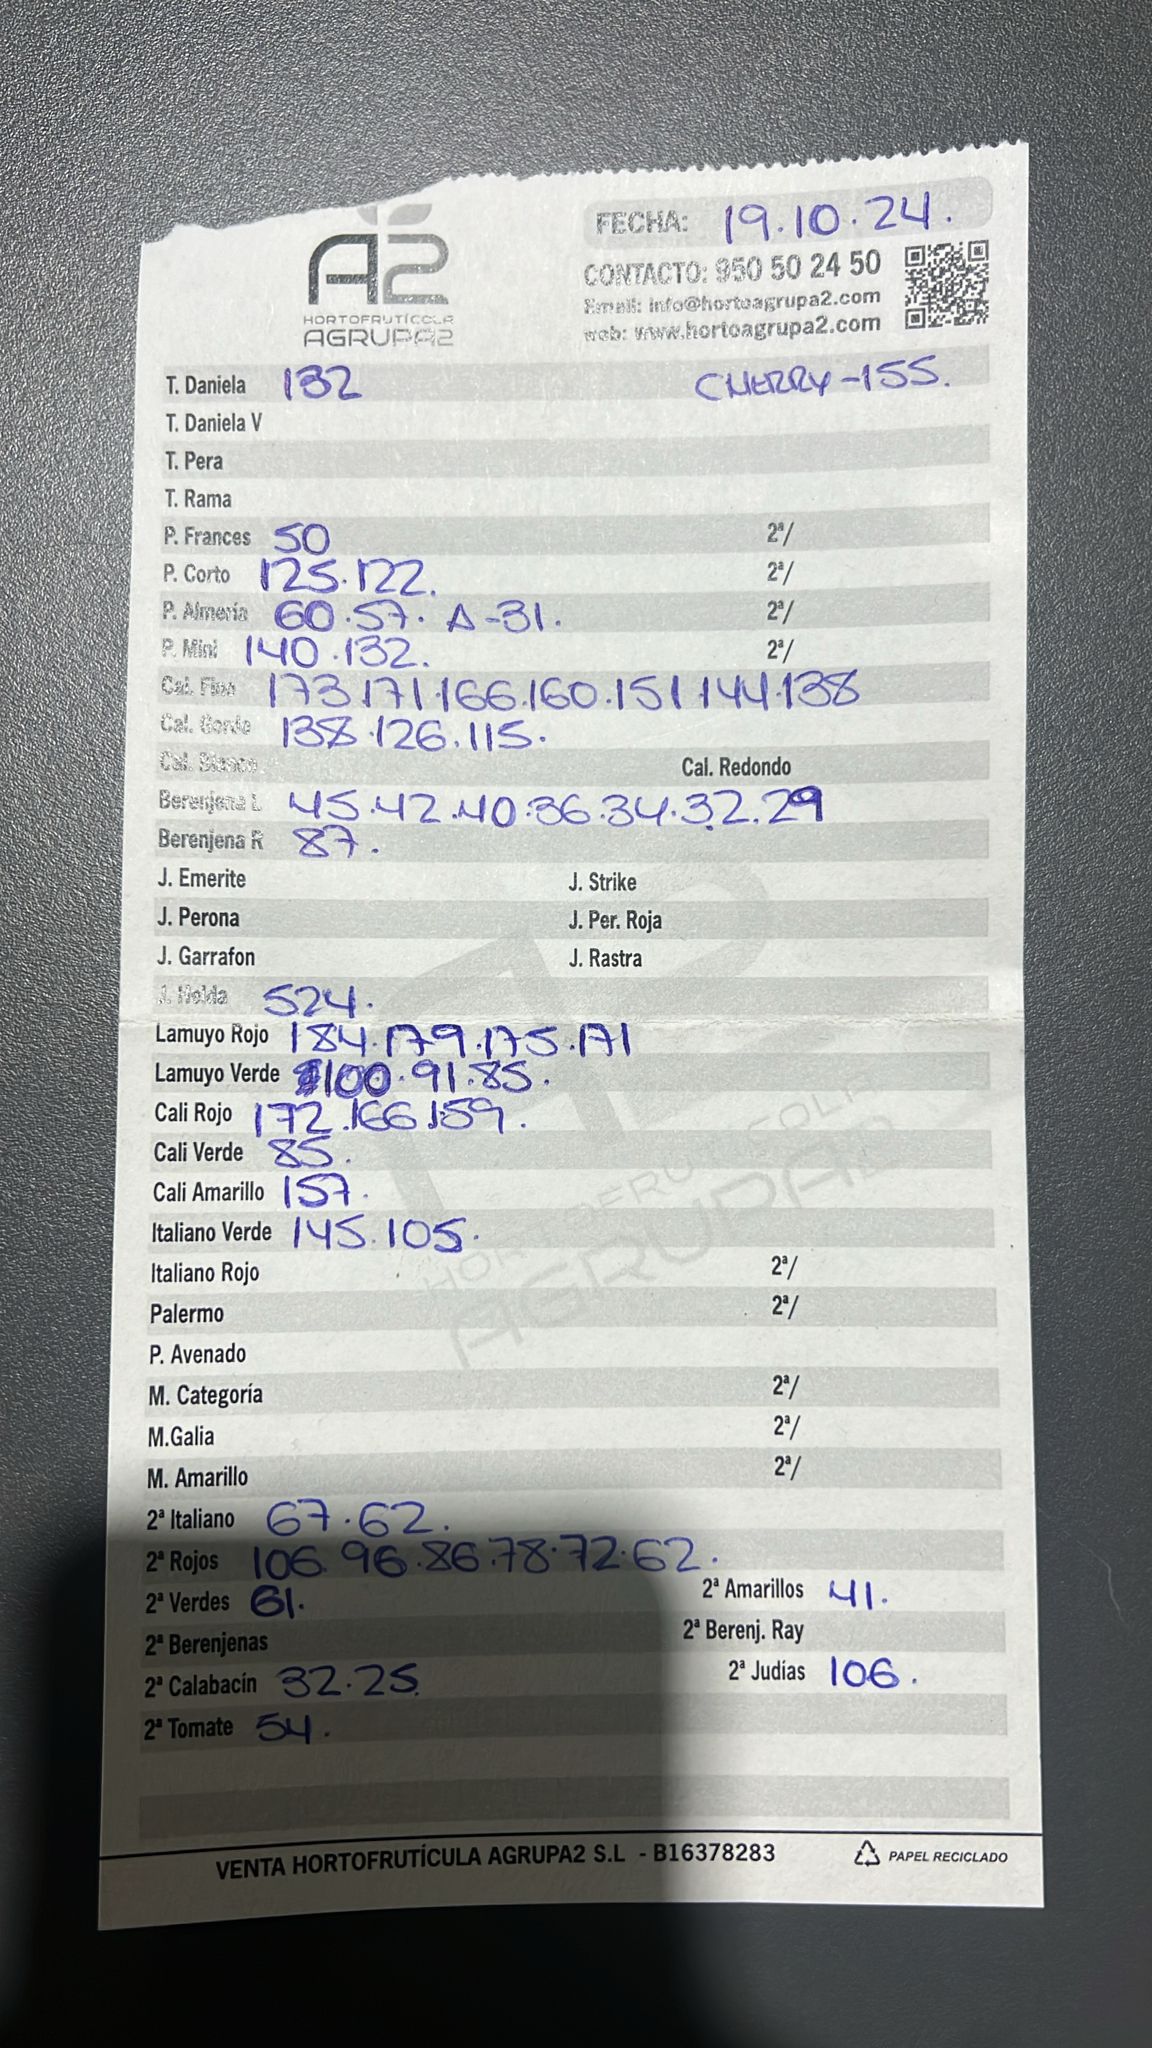 A2
HORTOFRUTÍCOLA
AGRUPA2
FECHA: 19.10.24.
CONTACTO: 950 50 24 50
Email: info@hortoagrupa2.com
web: www.hortoagrupa2.com
T. Daniela 132 CHERRY-155.
T. Daniela V
T. Pera
T. Rama
P. Frances 50 2ª/
P. Corto 125.122. 2ª/
P. Almeria 60.57. A-31. 2ª/
P. Mini 140.132. 2ª/
Cal. Fino 173.171.166.160.151.144.138
Cal. Gordo 138.126.115.
Cal. Blanco Cal. Redondo
Berenjena L 45.42.40.36.34.32.29
Berenjena R 87.
J. Emerite J. Strike
J. Perona J. Per. Roja
J. Garrafon J. Rastra
J. Helda 524.
Lamuyo Rojo 184.179.175.171
Lamuyo Verde 100.91.85.
Cali Rojo 172.166.159.
Cali Verde 85.
Cali Amarillo 157.
Italiano Verde 145.105.
Italiano Rojo 2ª/
Palermo 2ª/
P. Avenado
M. Categoría 2ª/
M.Galia 2ª/
M. Amarillo 2ª/
2ª Italiano 67.62.
2ª Rojos 106.96.86.78.72.62.
2ª Verdes 61. 2ª Amarillos 41.
2ª Berenjenas 2ª Berenj. Ray
2ª Calabacín 32.25. 2ª Judías 106.
2ª Tomate 54.
VENTA HORTOFRUTÍCULA AGRUPA2 S.L - B16378283 PAPEL RECICLADO